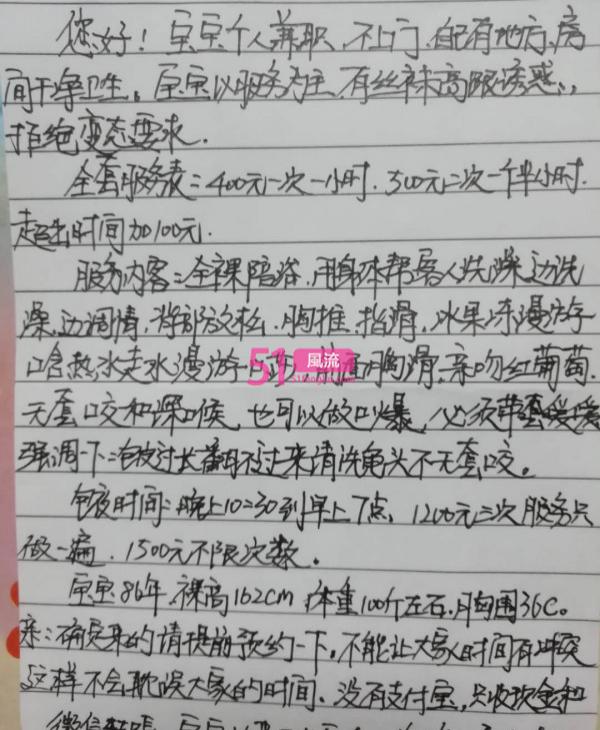 您好！宝宝个人兼职，不上门，自配有地方，房
间干净卫生。宝宝以服务为主，有丝袜高跟诱惑，
拒绝变态要求。
全套服务表：400元一次一小时，500元二次一个半小时.
超出时间加100元.
服务内容：全裸陪浴，用身体帮客人洗澡边洗
澡，边调情，背部放松，胸推，指滑，水果冻漫游
口含热水走水漫游 胸滑，亲吻红葡萄.
51風流
无套口交和深喉，也可以做口爆，必须带套爱爱
强调一下：包皮过长翻不过来请洗龟头不无套口交。
包夜时间：晚上10:30到早上7点，1200元三次服务只
做一遍，1500元不限次数。
宝宝86年，裸高162cm，体重100斤左右，胸围36C。
亲：确定来的请提前预约一下，不能让大家时间有冲突
这样不会耽误大家的时间，没有支付宝，只收现金和
微信